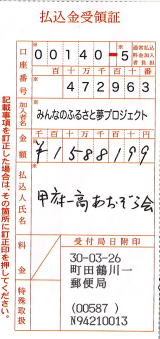 払込金受領証
口座番号
00140-5
通常払込料金加入者負担
百十万千百十番
472963
加入者名
みんなのふるさと夢プロジェクト
金額
千百十万千百十円
¥1588199
払込人氏名
甲府一高あおぞら会
料金
特殊取扱
受付局日附印
30-03-26
町田鶴川一
郵便局
(00587)
N94210013
記載事項を訂正した場合は、その箇所に訂正印を押してください。